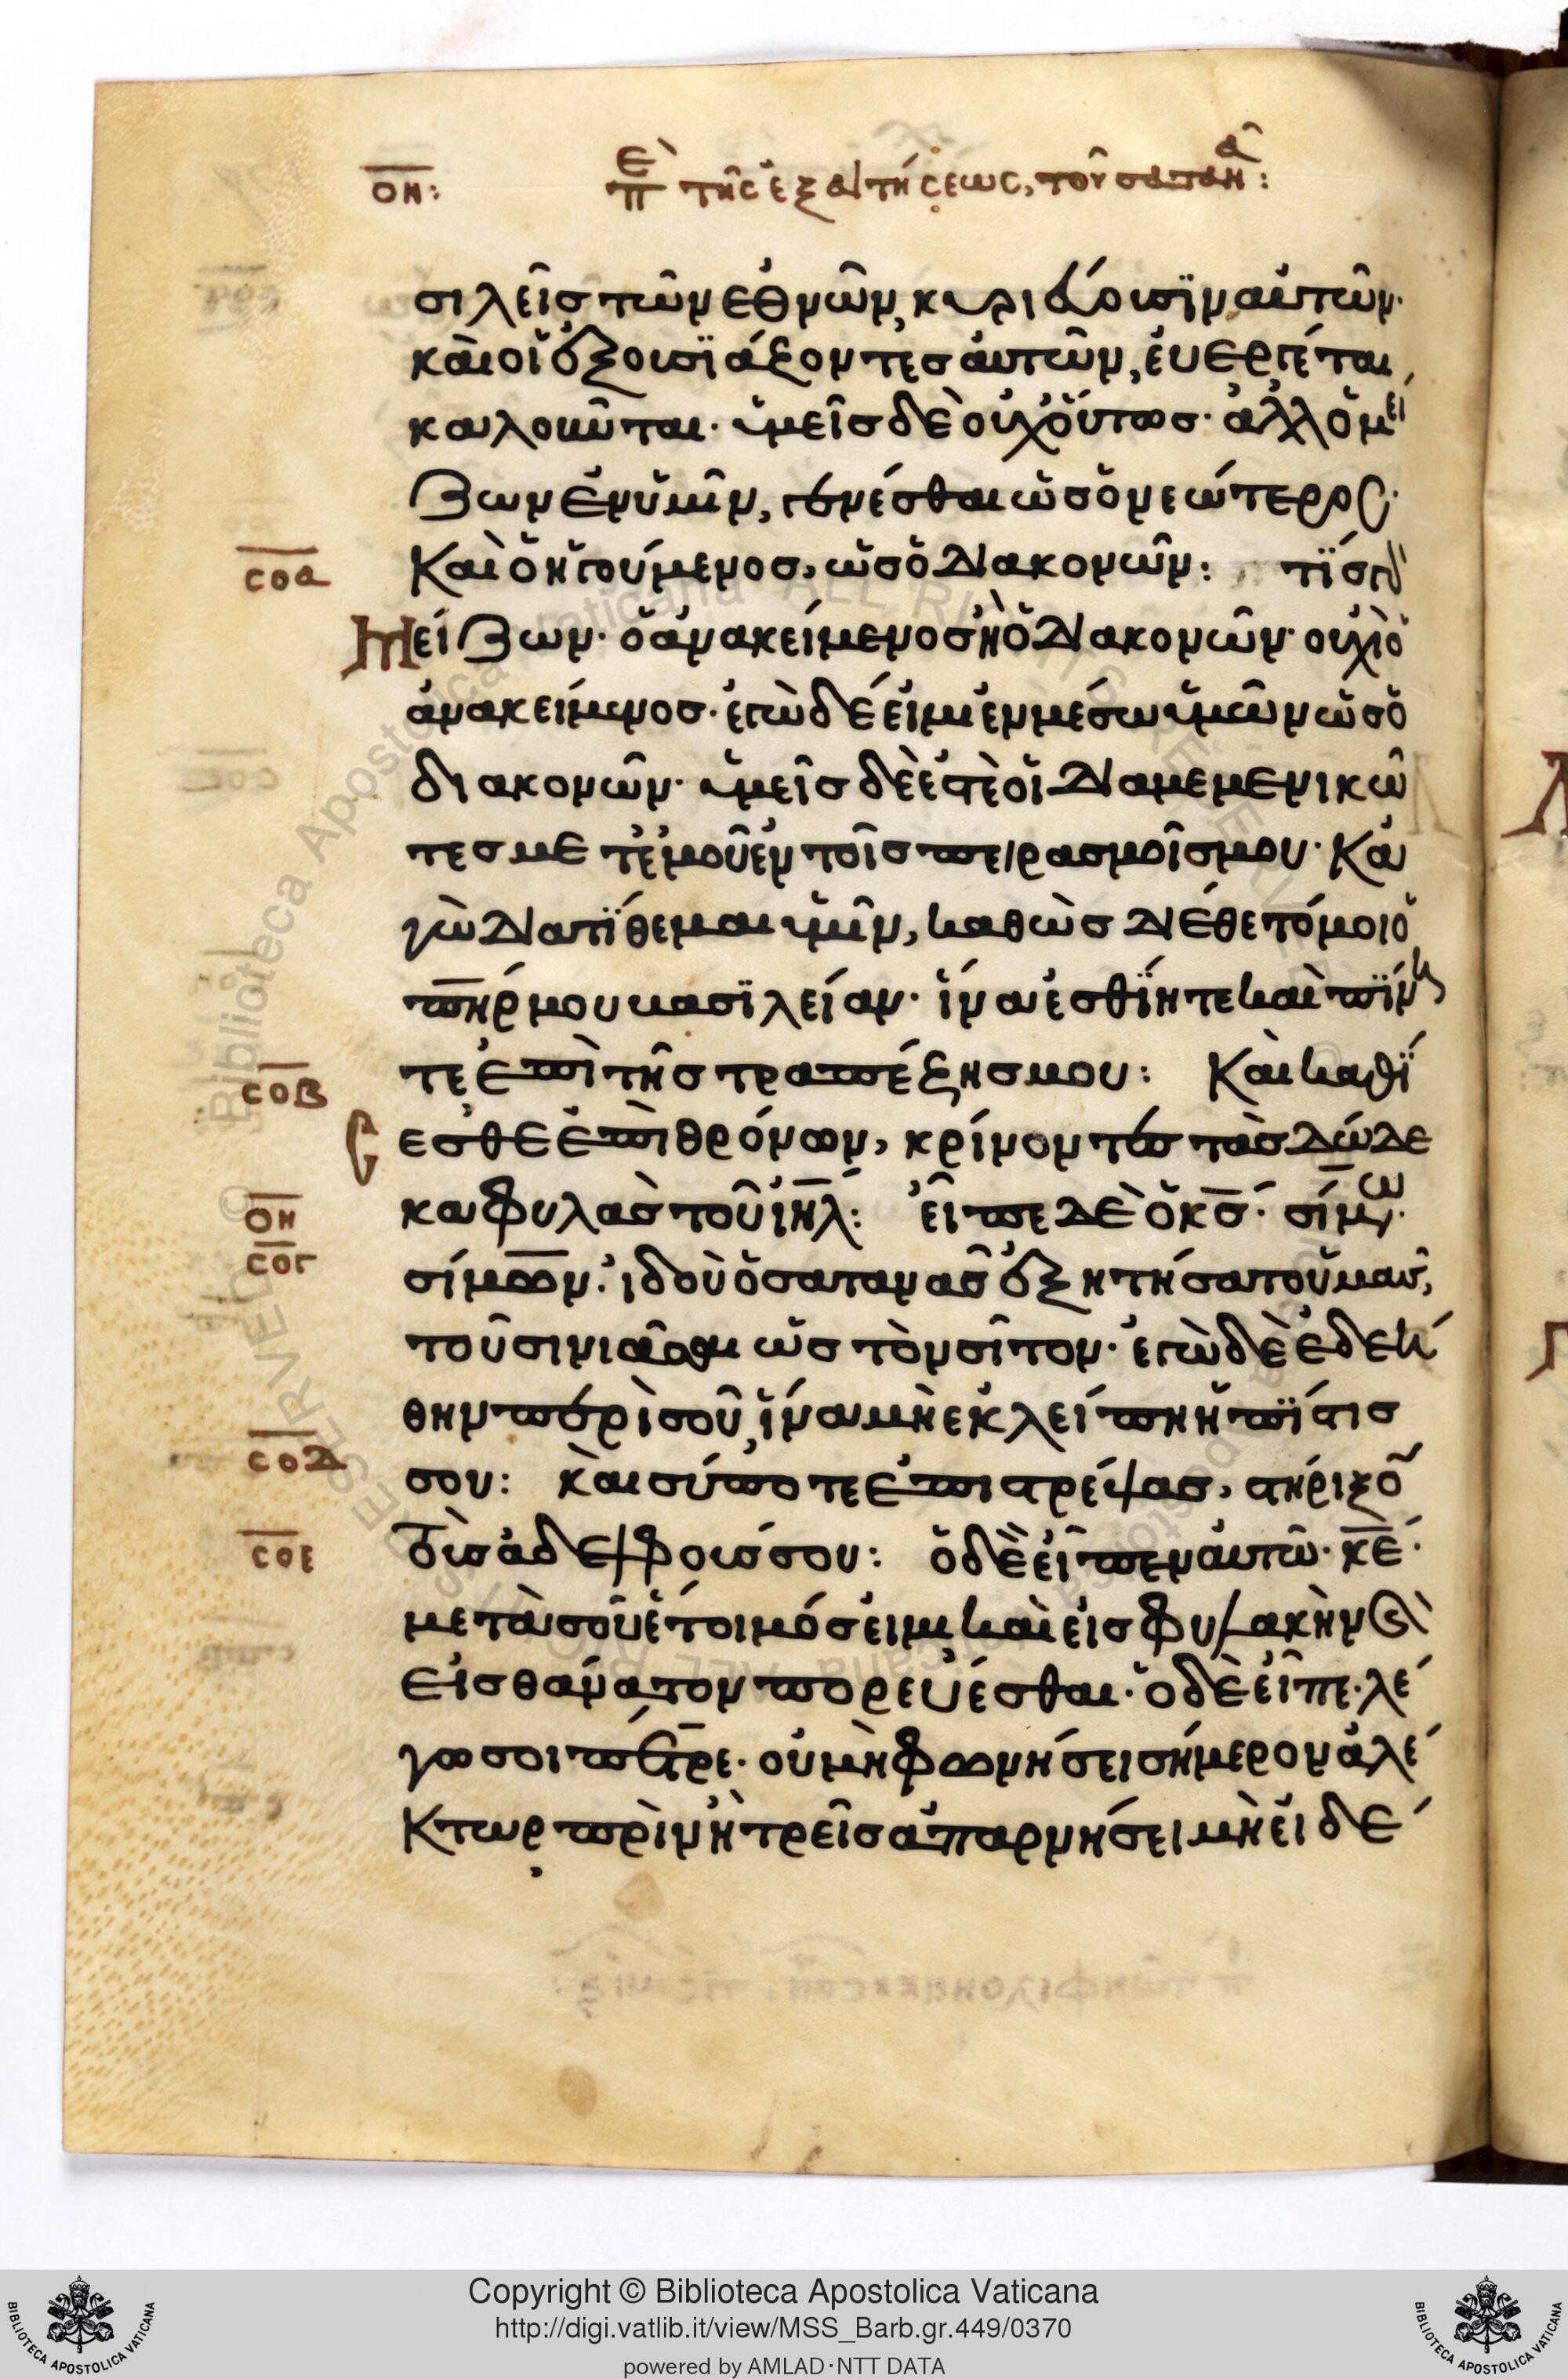 ΟΗ: ΠΕ τῆς ἐξαιτήσεως, τοῦ σατανᾶ:
σιλεῖς τῶν ἐθνῶν, κυριεύουσϊν αὐτῶν·
καὶ οἱ ἐξουσϊάζοντες αὐτῶν, ἐυεργέται
καλοῦνται· ὑμεῖς δὲ οὐχ' οὕτως· ἀλλ' ὁ μεί
ζων ἐν ὑμῖν, γενέσθαι ὡς ὁ νεώτερος·
ΣΟΑ
Καὶ ὁ ἡγούμενος, ὡς ὁ διακονῶν: τϊς γὰρ
Μείζων· ὁ ἀνακείμενος ἢ ὁ διακονῶν· οὐχὶ ὁ
ἀνακείμενος· ἐγὼ δέ εἰμι ἐν μέσω ὑμῶν ὡς ὁ
διακονῶν· ὑμεῖς δὲ ἐστὲ οἱ διαμεμενικώ
τες με τ' ἐμοῦ ἐν τοῖς πειρασμοῖς μου· Κα
γὼ διατϊθεμαι ὑμῖν, καθὼς διέθετό μοι ὁ
πηρ μου βασϊλείαν· ἵνα ἐσθϊητε καὶ πϊνη
τε ἐπὶ τῆς τραπέζης μου: Καὶ καθϊ
ΣΟΒ
εσθε ἐπὶ θρόνων, κρίνοντες τὰς δώδε
κα φυλὰς τοῦ ἰηλ: εἶπε δὲ ὁ κς· σίμων·
ΟΗ
ΣΟΓ
σίμων· ἰδοὺ ὁ σατανᾶς ἐξητήσατο ὑμᾶς,
τοῦ σινιᾶσαι ὡς τὸν σῖτον· ἐγὼ δὲ ἐδεή
θην περὶ σοῦ, ἵνα μὴ εκλείπη ἡ πϊστις
σου: καὶ σύ ποτε ἐπιστρέψας, στήριξον
ΣΟΔ
τοὺς ἀδελφούς σου: ὁ δὲ εἶπεν αὐτῶ· κε·
ΣΟΕ
μετὰ σοῦ ἕτοιμός εἰμι καὶ εἰς φυλακὴν καὶ
εἰς θάνατον πορεύεσθαι· ὁ δὲ εἶπε· λέ
γω σοι πέτρε· οὐ μὴ φωνήσει σήμερον ἀλέ
κτωρ πρὶν ἢ τρεῖς ἀπαρνήσει μὴ εἰδέ
Copyright © Biblioteca Apostolica Vaticana
http://digi.vatlib.it/view/MSS_Barb.gr.449/0370
powered by AMLAD·NTT DATA
BIBLIOTECA APOSTOLICA VATICANA
BIBLIOTECA APOSTOLICA VATICANA